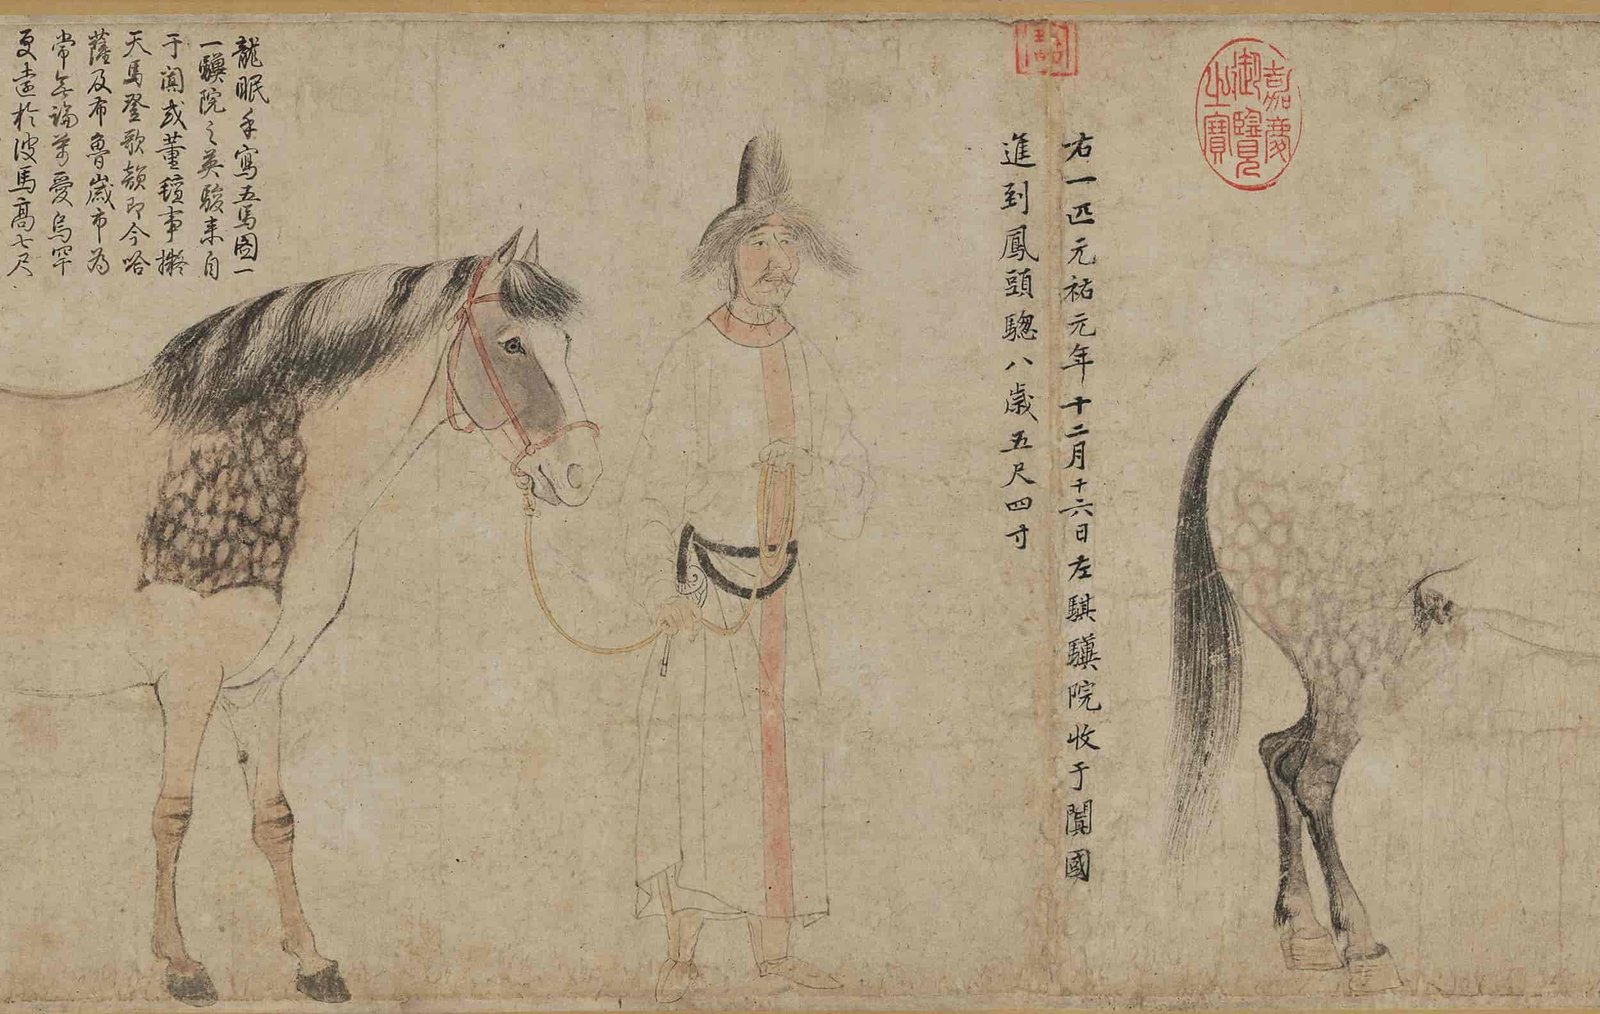 嘉慶
御覽
之寶
右一匹元祐元年十二月十六日左騏驥院收于闐國
進到鳳頭驄八歲五尺四寸
龍眠手寫五馬圖一
一驥院之英駿来自
于闐或董氊事擬
天馬登歌頌即今哈
薩及布魯歲市為
常無論愛烏罕
更遠於彼馬高七尺